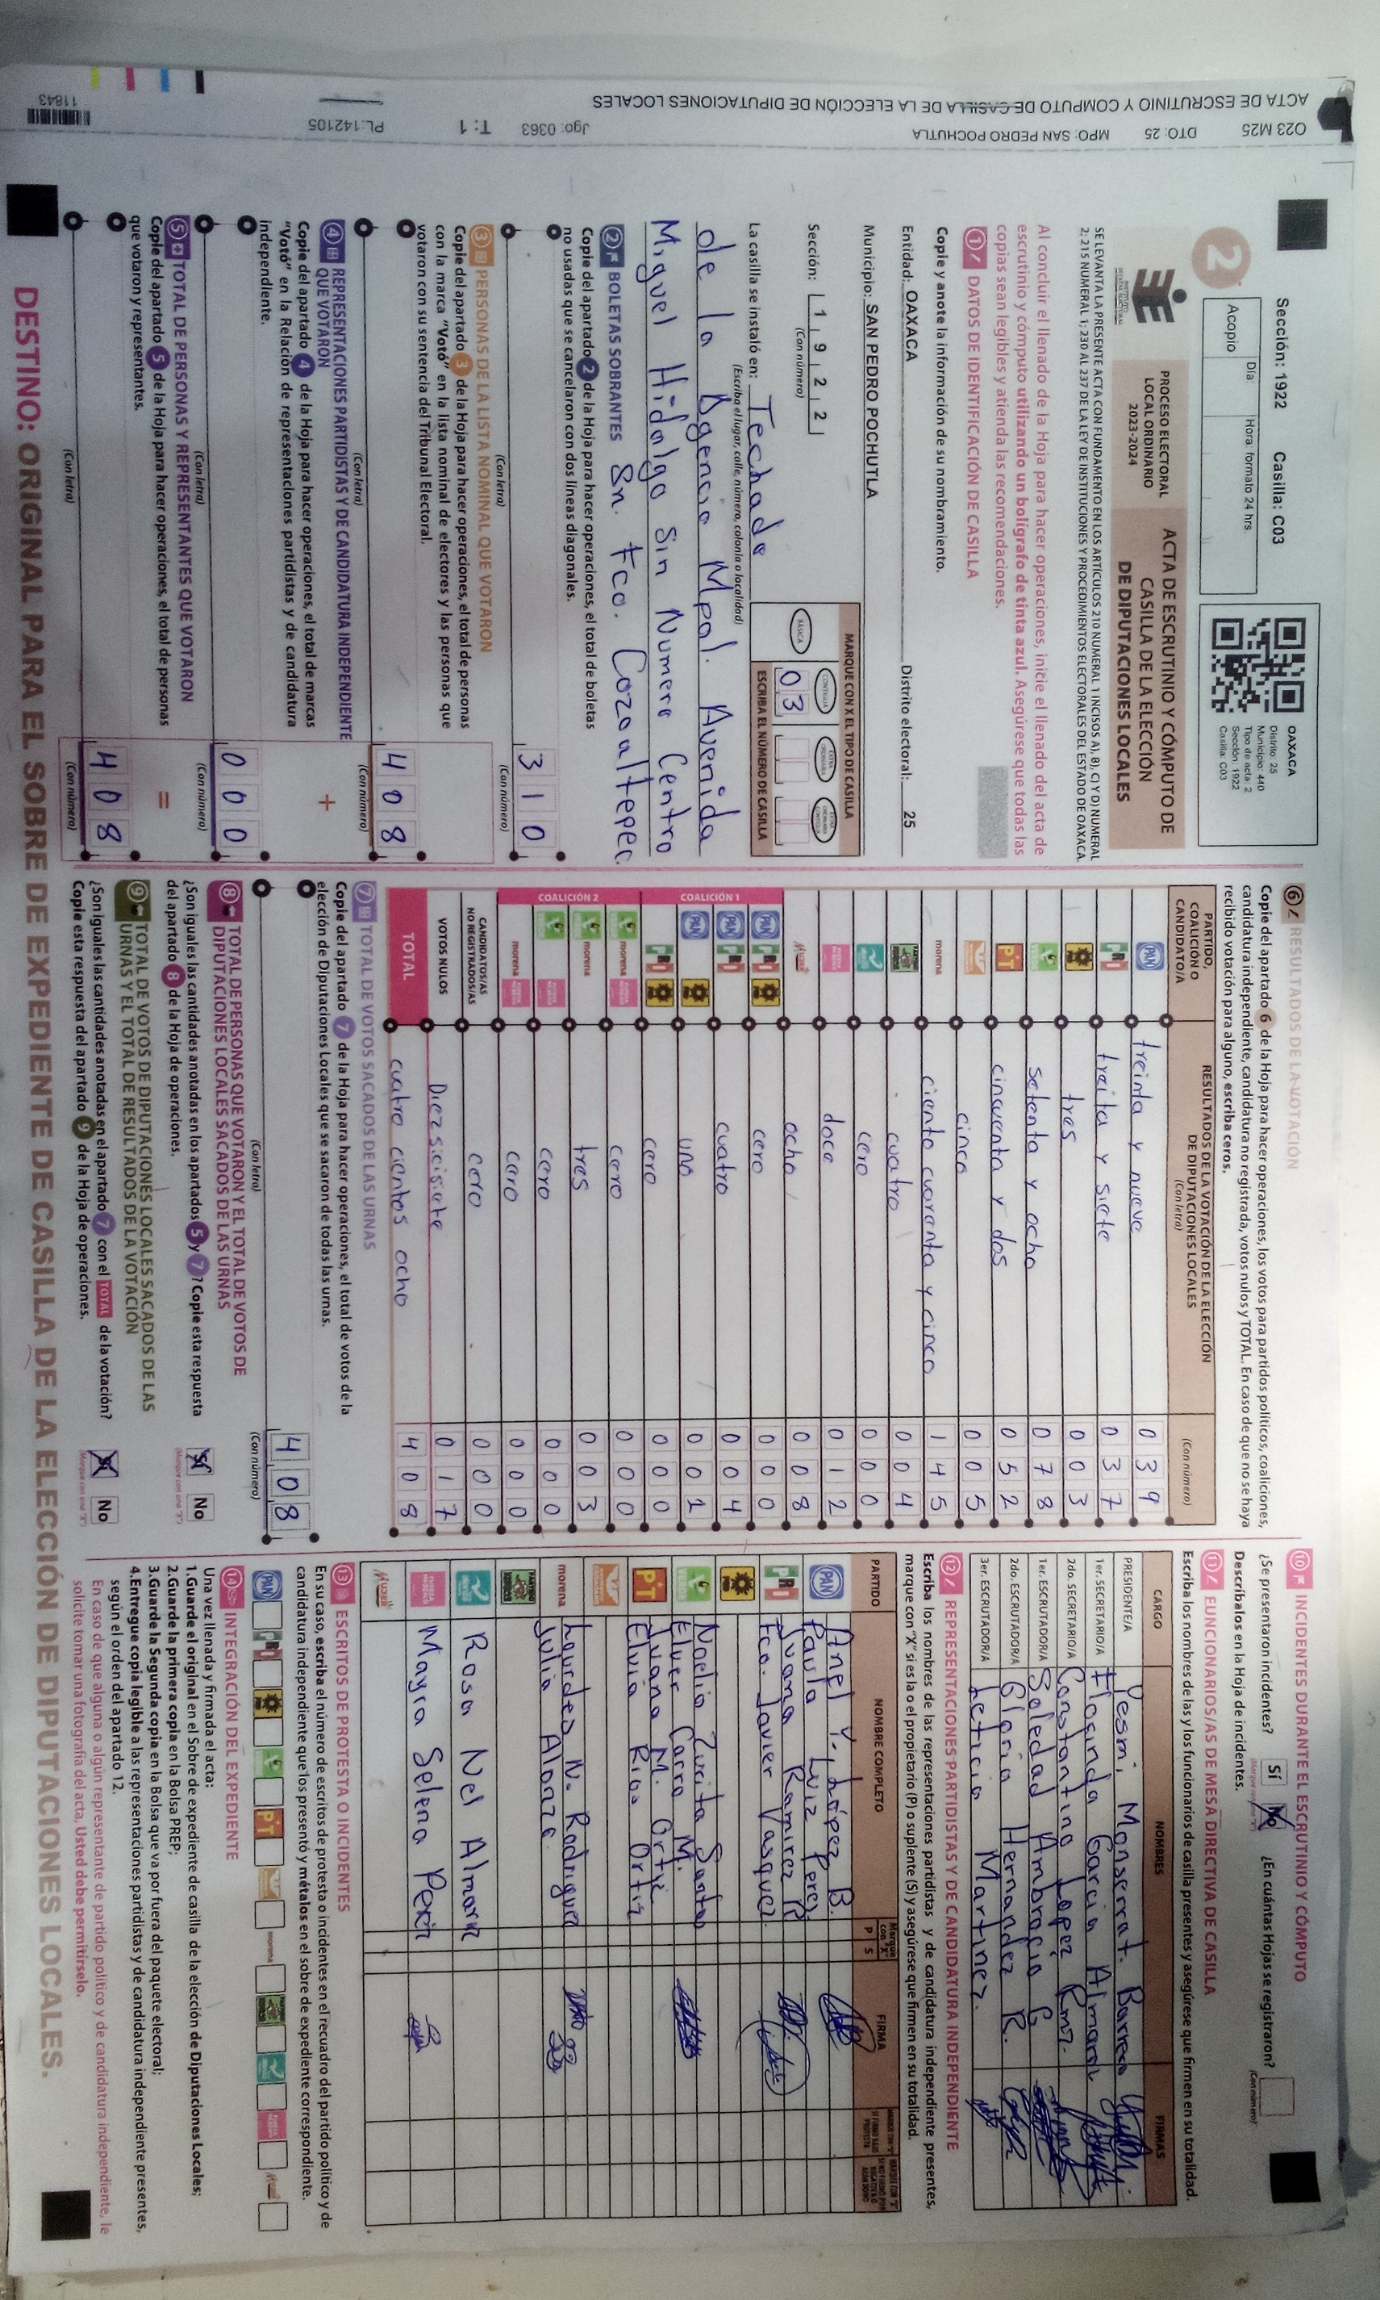 ACTA DE ESCRUTINIO Y CÓMPUTO DE CASILLA DE LA ELECCIÓN DE DIPUTACIONES LOCALES
O23 M25 DTO: 25 MPO: SAN PEDRO POCHUTLA Jgo: 0363 T: 1 PL:142105
11843
Sección: 1922 Casilla: C03
2
Día: Hora: formato 24 hrs.
Acopio
OAXACA
Distrito: 25
Municipio: 440
Tipo de acta: 2
Sección: 1922
Casilla: C03
PROCESO ELECTORAL
LOCAL ORDINARIO
2023-2024
ACTA DE ESCRUTINIO Y CÓMPUTO DE
CASILLA DE LA ELECCIÓN
DE DIPUTACIONES LOCALES
SE LEVANTA LA PRESENTE ACTA CON FUNDAMENTO EN LOS ARTÍCULOS 210 NUMERAL 1 INCISOS A), B), C) Y D) NUMERAL
2; 215 NUMERAL 1; 230 AL 237 DE LA LEY DE INSTITUCIONES Y PROCEDIMIENTOS ELECTORALES DEL ESTADO DE OAXACA.
Al concluir el llenado de la Hoja para hacer operaciones, inicie el llenado del acta de
escrutinio y cómputo utilizando un bolígrafo de tinta azul. Asegúrese que todas las
copias sean legibles y atienda las recomendaciones.
1 DATOS DE IDENTIFICACIÓN DE CASILLA
Copie y anote la información de su nombramiento.
Entidad: OAXACA Distrito electoral: 25
Municipio: SAN PEDRO POCHUTLA
Sección: 1 9 2 2
(Con número)
MARQUE CON X EL TIPO DE CASILLA
BÁSICA
03
ESCRIBA EL NÚMERO DE CASILLA
La casilla se instaló en: Techado
(Escriba el lugar, calle, número, colonia o localidad)
de la Agencia Mpal. Avenida
Miguel Hidalgo Sin Numero Centro
Sn. Fco. Cozoaltepec
2 BOLETAS SOBRANTES
Copie del apartado 2 de la Hoja para hacer operaciones, el total de boletas
no usadas que se cancelaron con dos líneas diagonales.
310
(Con letra) (Con número)
3 PERSONAS DE LA LISTA NOMINAL QUE VOTARON
Copie del apartado 3 de la Hoja para hacer operaciones, el total de personas
con la marca "Votó" en la lista nominal de electores y las personas que
votaron con su sentencia del Tribunal Electoral.
408
(Con letra) (Con número)
4 REPRESENTACIONES PARTIDISTAS Y DE CANDIDATURA INDEPENDIENTE
QUE VOTARON
+
Copie del apartado 4 de la Hoja para hacer operaciones, el total de marcas
"Votó" en la Relación de representaciones partidistas y de candidatura
independiente.
000
(Con letra) (Con número)
5 TOTAL DE PERSONAS Y REPRESENTANTES QUE VOTARON
=
Copie del apartado 5 de la Hoja para hacer operaciones, el total de personas
que votaron y representantes.
408
(Con letra) (Con número)
6 RESULTADOS DE LA VOTACIÓN
Copie del apartado 6 de la Hoja para hacer operaciones, los votos para partidos políticos, coaliciones,
candidatura independiente, candidatura no registrada, votos nulos y TOTAL. En caso de que no se haya
recibido votación para alguno, escriba ceros.
PARTIDO,
COALICIÓN O
CANDIDATO/A
RESULTADOS DE LA VOTACIÓN DE LA ELECCIÓN
DE DIPUTACIONES LOCALES
(Con letra) (Con número)
PAN treinta y nueve 039
PRI treita y siete 037
tres 003
setenta y ocho 078
PT cincuenta y dos 052
cinco 005
morena ciento cuarenta y cinco 145
cuatro 004
cero 000
doce 012
ocho 008
COALICIÓN 1
PAN PRI cero 000
PAN PRI cuatro 004
PAN uno 001
PRI cero 000
COALICIÓN 2
morena cero 000
morena tres 003
cero 000
morena cero 000
CANDIDATOS/AS
NO REGISTRADOS/AS cero 000
VOTOS NULOS Diezsieisiete 017
TOTAL cuatro cientos ocho 408
7 TOTAL DE VOTOS SACADOS DE LAS URNAS
Copie del apartado 7 de la Hoja para hacer operaciones, el total de votos de la
elección de Diputaciones Locales que se sacaron de todas las urnas.
408
(Con letra) (Con número)
8 TOTAL DE PERSONAS QUE VOTARON Y EL TOTAL DE VOTOS DE
DIPUTACIONES LOCALES SACADOS DE LAS URNAS
¿Son iguales las cantidades anotadas en los apartados 5 y 7? Copie esta respuesta
del apartado 8 de la Hoja de operaciones.
Sí No
9 TOTAL DE VOTOS DE DIPUTACIONES LOCALES SACADOS DE LAS
URNAS Y EL TOTAL DE RESULTADOS DE LA VOTACIÓN
¿Son iguales las cantidades anotadas en el apartado 7 con el TOTAL de la votación?
Copie esta respuesta del apartado 9 de la Hoja de operaciones.
Sí No
10 INCIDENTES DURANTE EL ESCRUTINIO Y CÓMPUTO
¿Se presentaron incidentes? Sí No ¿En cuántas Hojas se registraron?
(Con número)
Descríbalos en la Hoja de incidentes.
11 FUNCIONARIOS/AS DE MESA DIRECTIVA DE CASILLA
Escriba los nombres de las y los funcionarios de casilla presentes y asegúrese que firmen en su totalidad.
CARGO NOMBRES FIRMAS
PRESIDENTE/A Yesmi Monserrat. Barroso
1er. SECRETARIO/A Florinda Garcia Almaraz
2do. SECRETARIO/A Constantino Lopez Rmz.
1er. ESCRUTADOR/A Soledad Ambrocio G
2do. ESCRUTADOR/A Gloria Hernandez R.
3er. ESCRUTADOR/A Leticia Martinez.
12 REPRESENTACIONES PARTIDISTAS Y DE CANDIDATURA INDEPENDIENTE
Escriba los nombres de las representaciones partidistas y de candidatura independiente presentes,
marque con "X" si es la o el propietario (P) o suplente (S) y asegúrese que firmen en su totalidad.
PARTIDO NOMBRE COMPLETO Marque con "X" P S FIRMA
PAN Anel Y. López B.
Paula Luiz Perez.
PRI Juana Ramirez
Fco. Javier Vasquez.
Noelia Zurita Santos
Elver Carro M.
PT Juana M. Ortiz
Elvia Rios Ortiz
morena Lourdes N. Rodriguez
Julia Alonzo.
Rosa Nel Almaraz
Mayra Selena Perez
13 ESCRITOS DE PROTESTA O INCIDENTES
En su caso, escriba el número de escritos de protesta o incidentes en el recuadro del partido político y de
candidatura independiente que los presentó y métalos en el sobre de expediente correspondiente.
PAN PRI PT morena
14 INTEGRACIÓN DEL EXPEDIENTE
Una vez llenada y firmada el acta:
1.Guarde el original en el Sobre de expediente de casilla de la elección de Diputaciones Locales;
2.Guarde la primera copia en la Bolsa PREP;
3.Guarde la Segunda copia en la Bolsa que va por fuera del paquete electoral;
4.Entregue copia legible a las representaciones partidistas y de candidatura independiente presentes,
según el orden del apartado 12.
En caso de que alguna o algún representante de partido político y de candidatura independiente, le
solicite tomar una fotografía del acta, Usted debe permitírselo.
DESTINO: ORIGINAL PARA EL SOBRE DE EXPEDIENTE DE CASILLA DE LA ELECCIÓN DE DIPUTACIONES LOCALES.